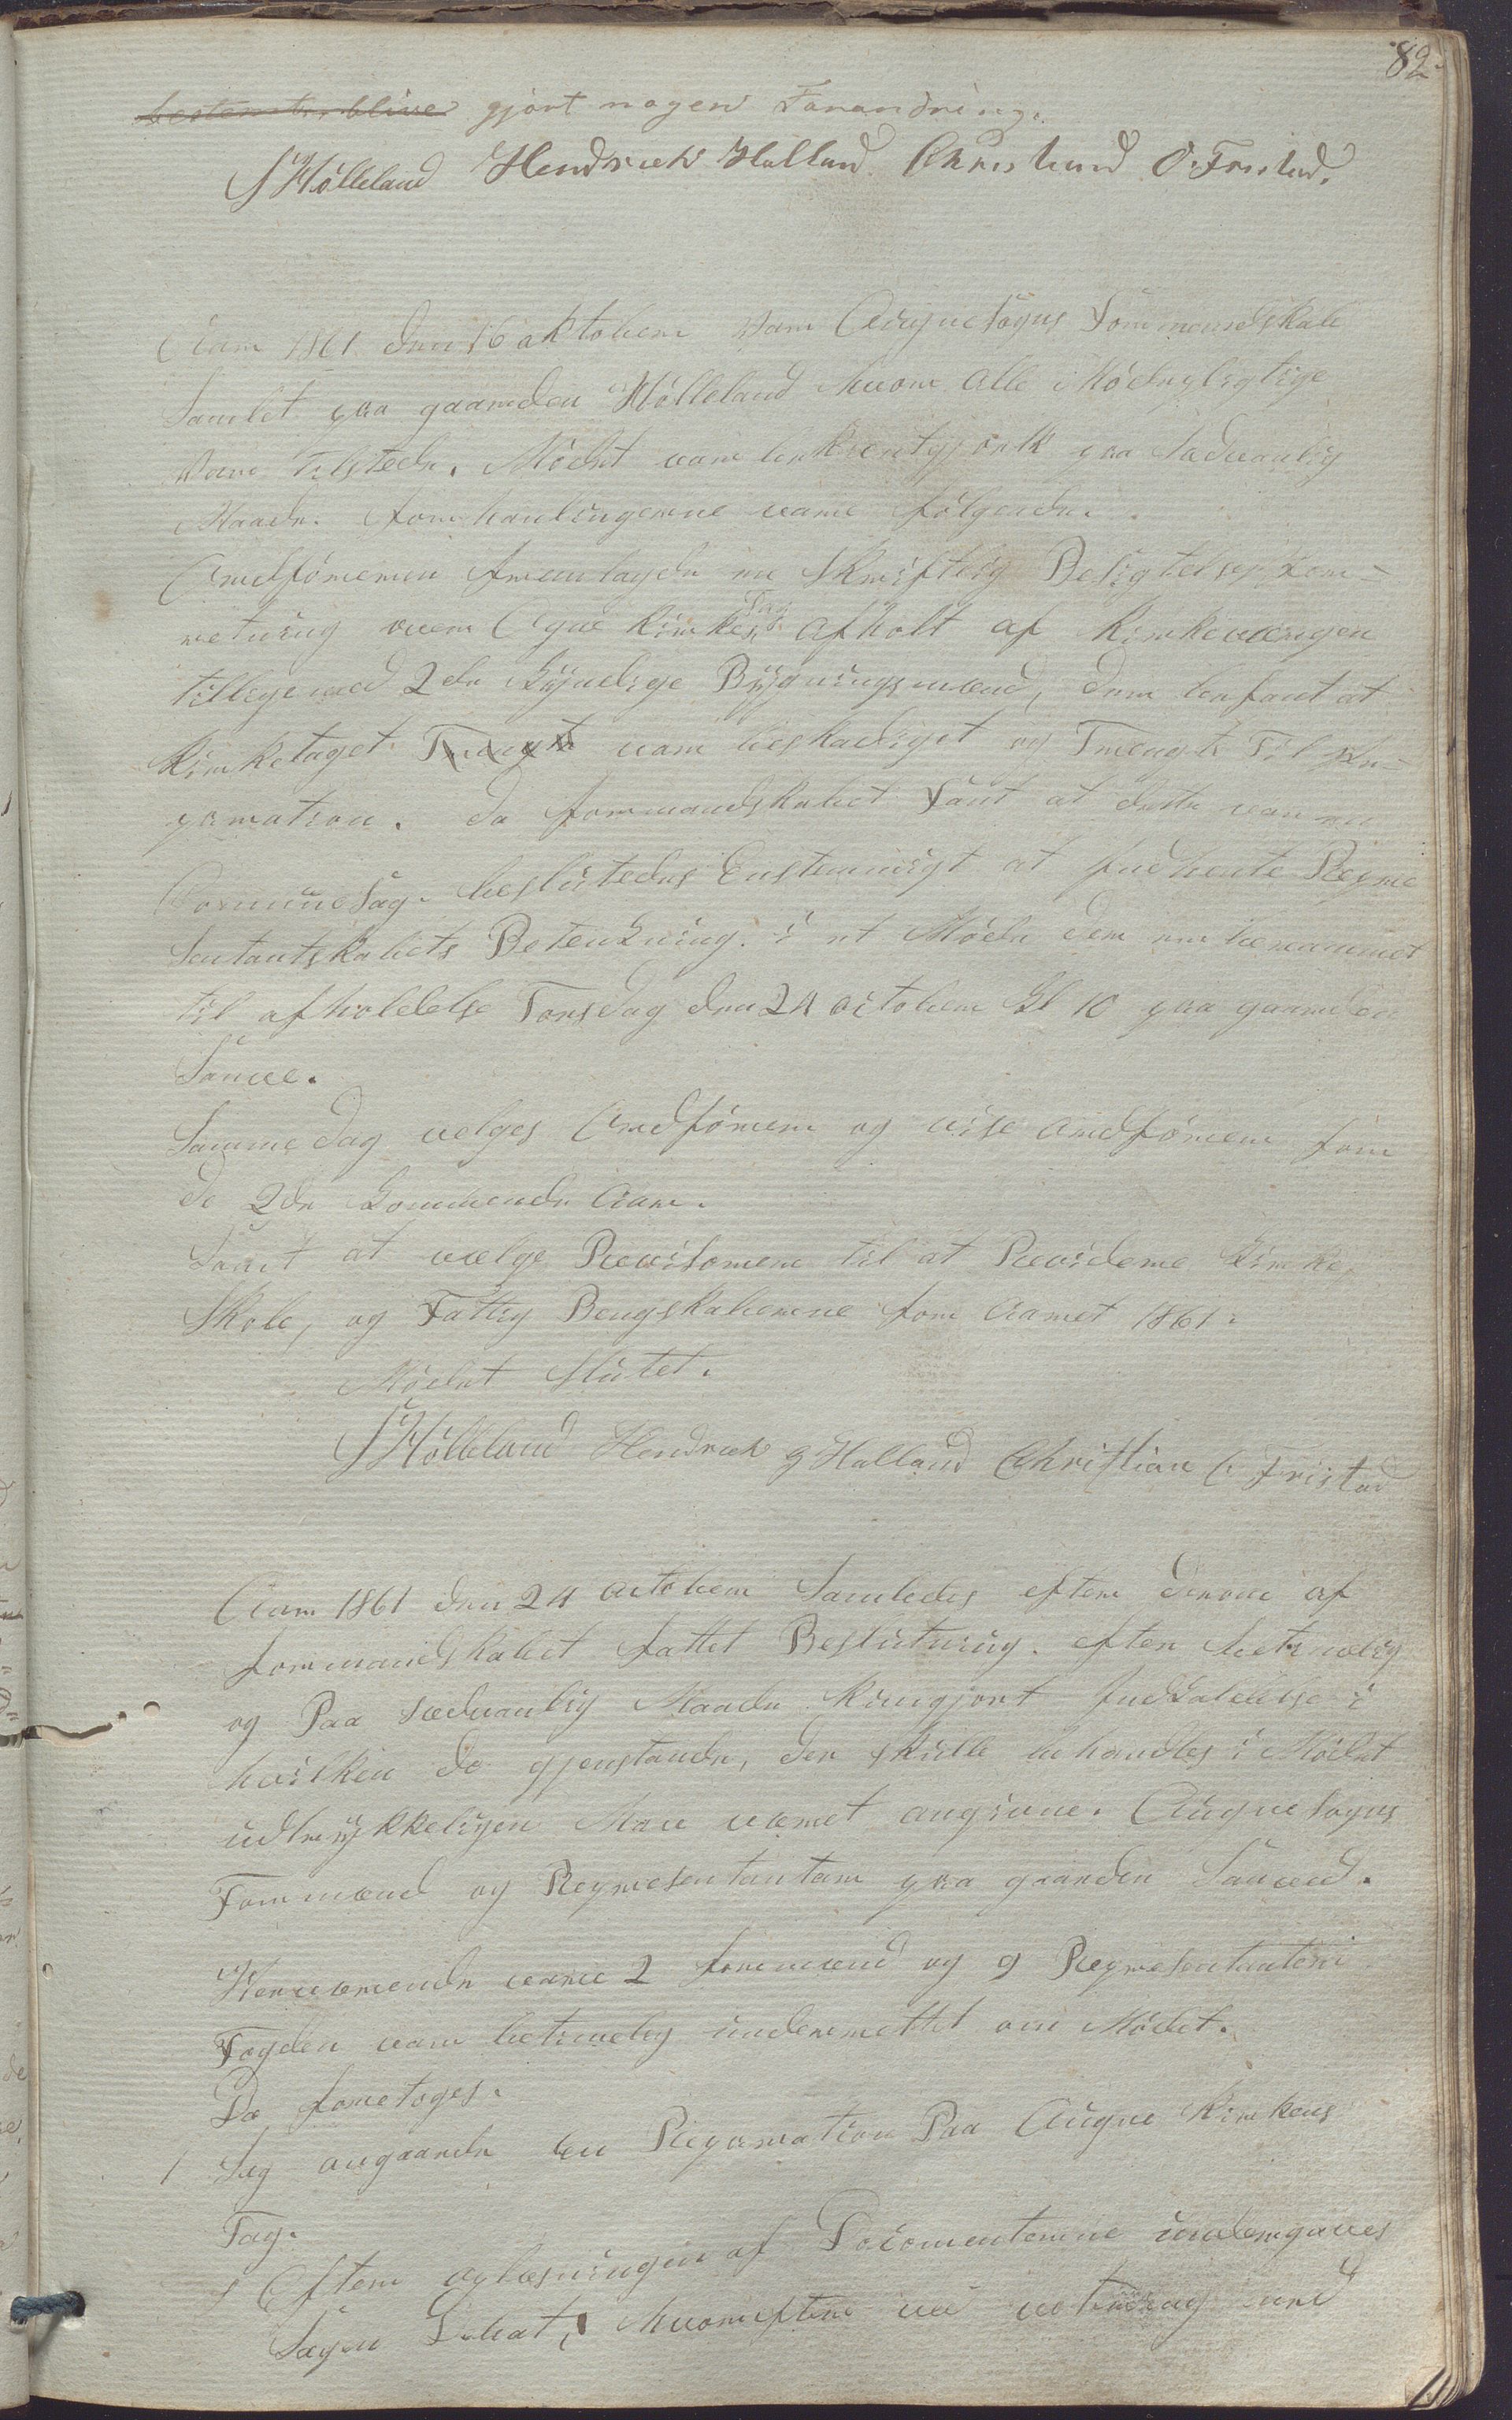 82.
bestemtes blive gjort nogen Forandring.
S Hölleland Hendrick Halland Christiand O. Fristad.
Aar 1861 den 16 oktober var Augne Sogns Formandskab
Samlet paa gaarden Hölleland hvor Alle Mödepligtige
var tilstede. Mödet var bekientgjordt paa sædvanlig
Maade. Forhanlingerne vare fölgende.
Ordföreren fremlagde en Skriftlig Besigtelsesfor-
retning over Ogne Kirkes Tag afholt af Kirkeværgen
tilligemed 2de kyndige Bÿgningsmænd, der befant at
Kirketaget Trængte var beskadiget og Trængte Til Re-
paration. da formandskabet Fant at dette var en
Commune Sag. beslutedes Enstemmigt at indhente Repre
sentantskabets Betenkning. i et Möde der er berammet
til afholdelse Torsdag den 24 octtober Kl 10 paa gaarden
Saue.
Samme dag velges Ordförer og vise ordförer for
de 2de Kommende Aar.
Samt at velge Revisorer til at Reviderere Kirke,
Skole, og Fattig Rengskaberne for Aaret 1861.
Mödet slutet.
S Hölleland Hendrick g Halland Christian O. Fristad
Aar 1861 den 24 octtober Samledes efter derom af
formandskabet fattet Beslutning. efter betimelig
og Paa Sædvanlig Maade Kungjort Indkaldelse i
hvilken de gjenstande, der skulle behandles i Mödet
udtrÿkkeligen Maa været angivne. Augne Sogns
Formænd og Representanter paa gaarden Saued.
Nerværende vare 2 formænd og 9 Representanter.
Fogden var betimelig underrettet om Mödet.
Da foretoges.
1 Sag angaaende en Reparation Paa Augne Kirkens
Tag.
Efter oplæsningen af Documenterne undergaves
Sagen Debat, hvorefter ved votering med